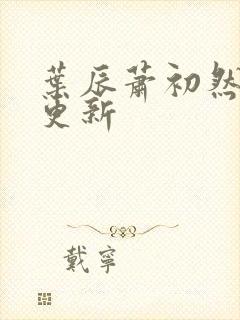 葉辰蕭初然
更新
戴寧